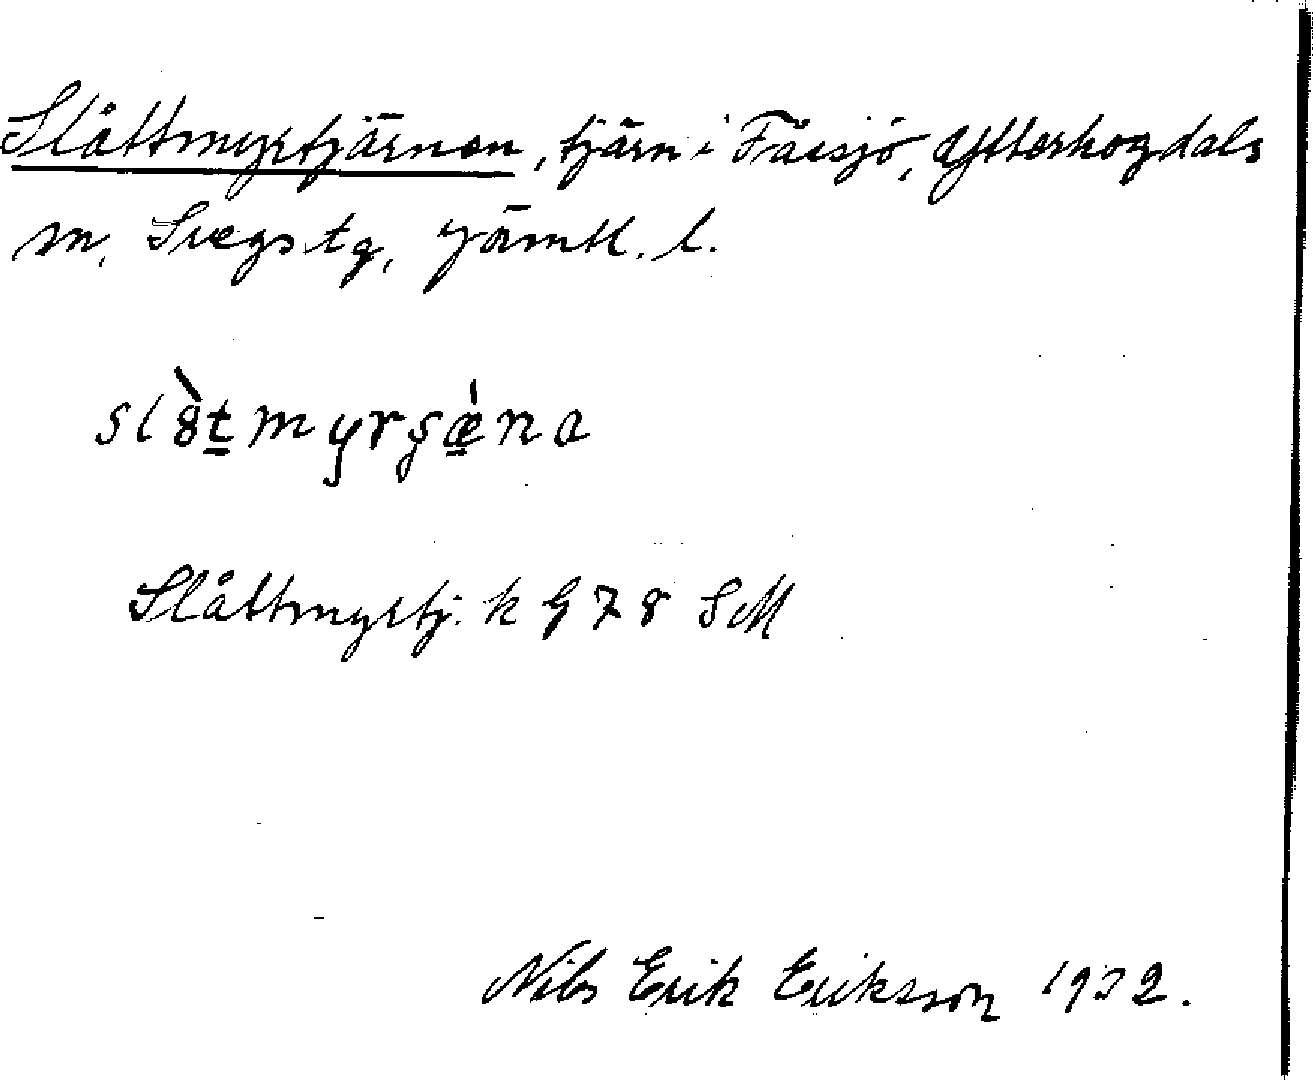 Slåttmyrtjärnen, tjärn i Fåssjö, Ytterhogdals
m. Svegs tg, Jämtl. l.
slòt̲myrşæ̲̀na
Slåttmyrtj. k G 78 SM
Nils Erik Eriksson 1932.